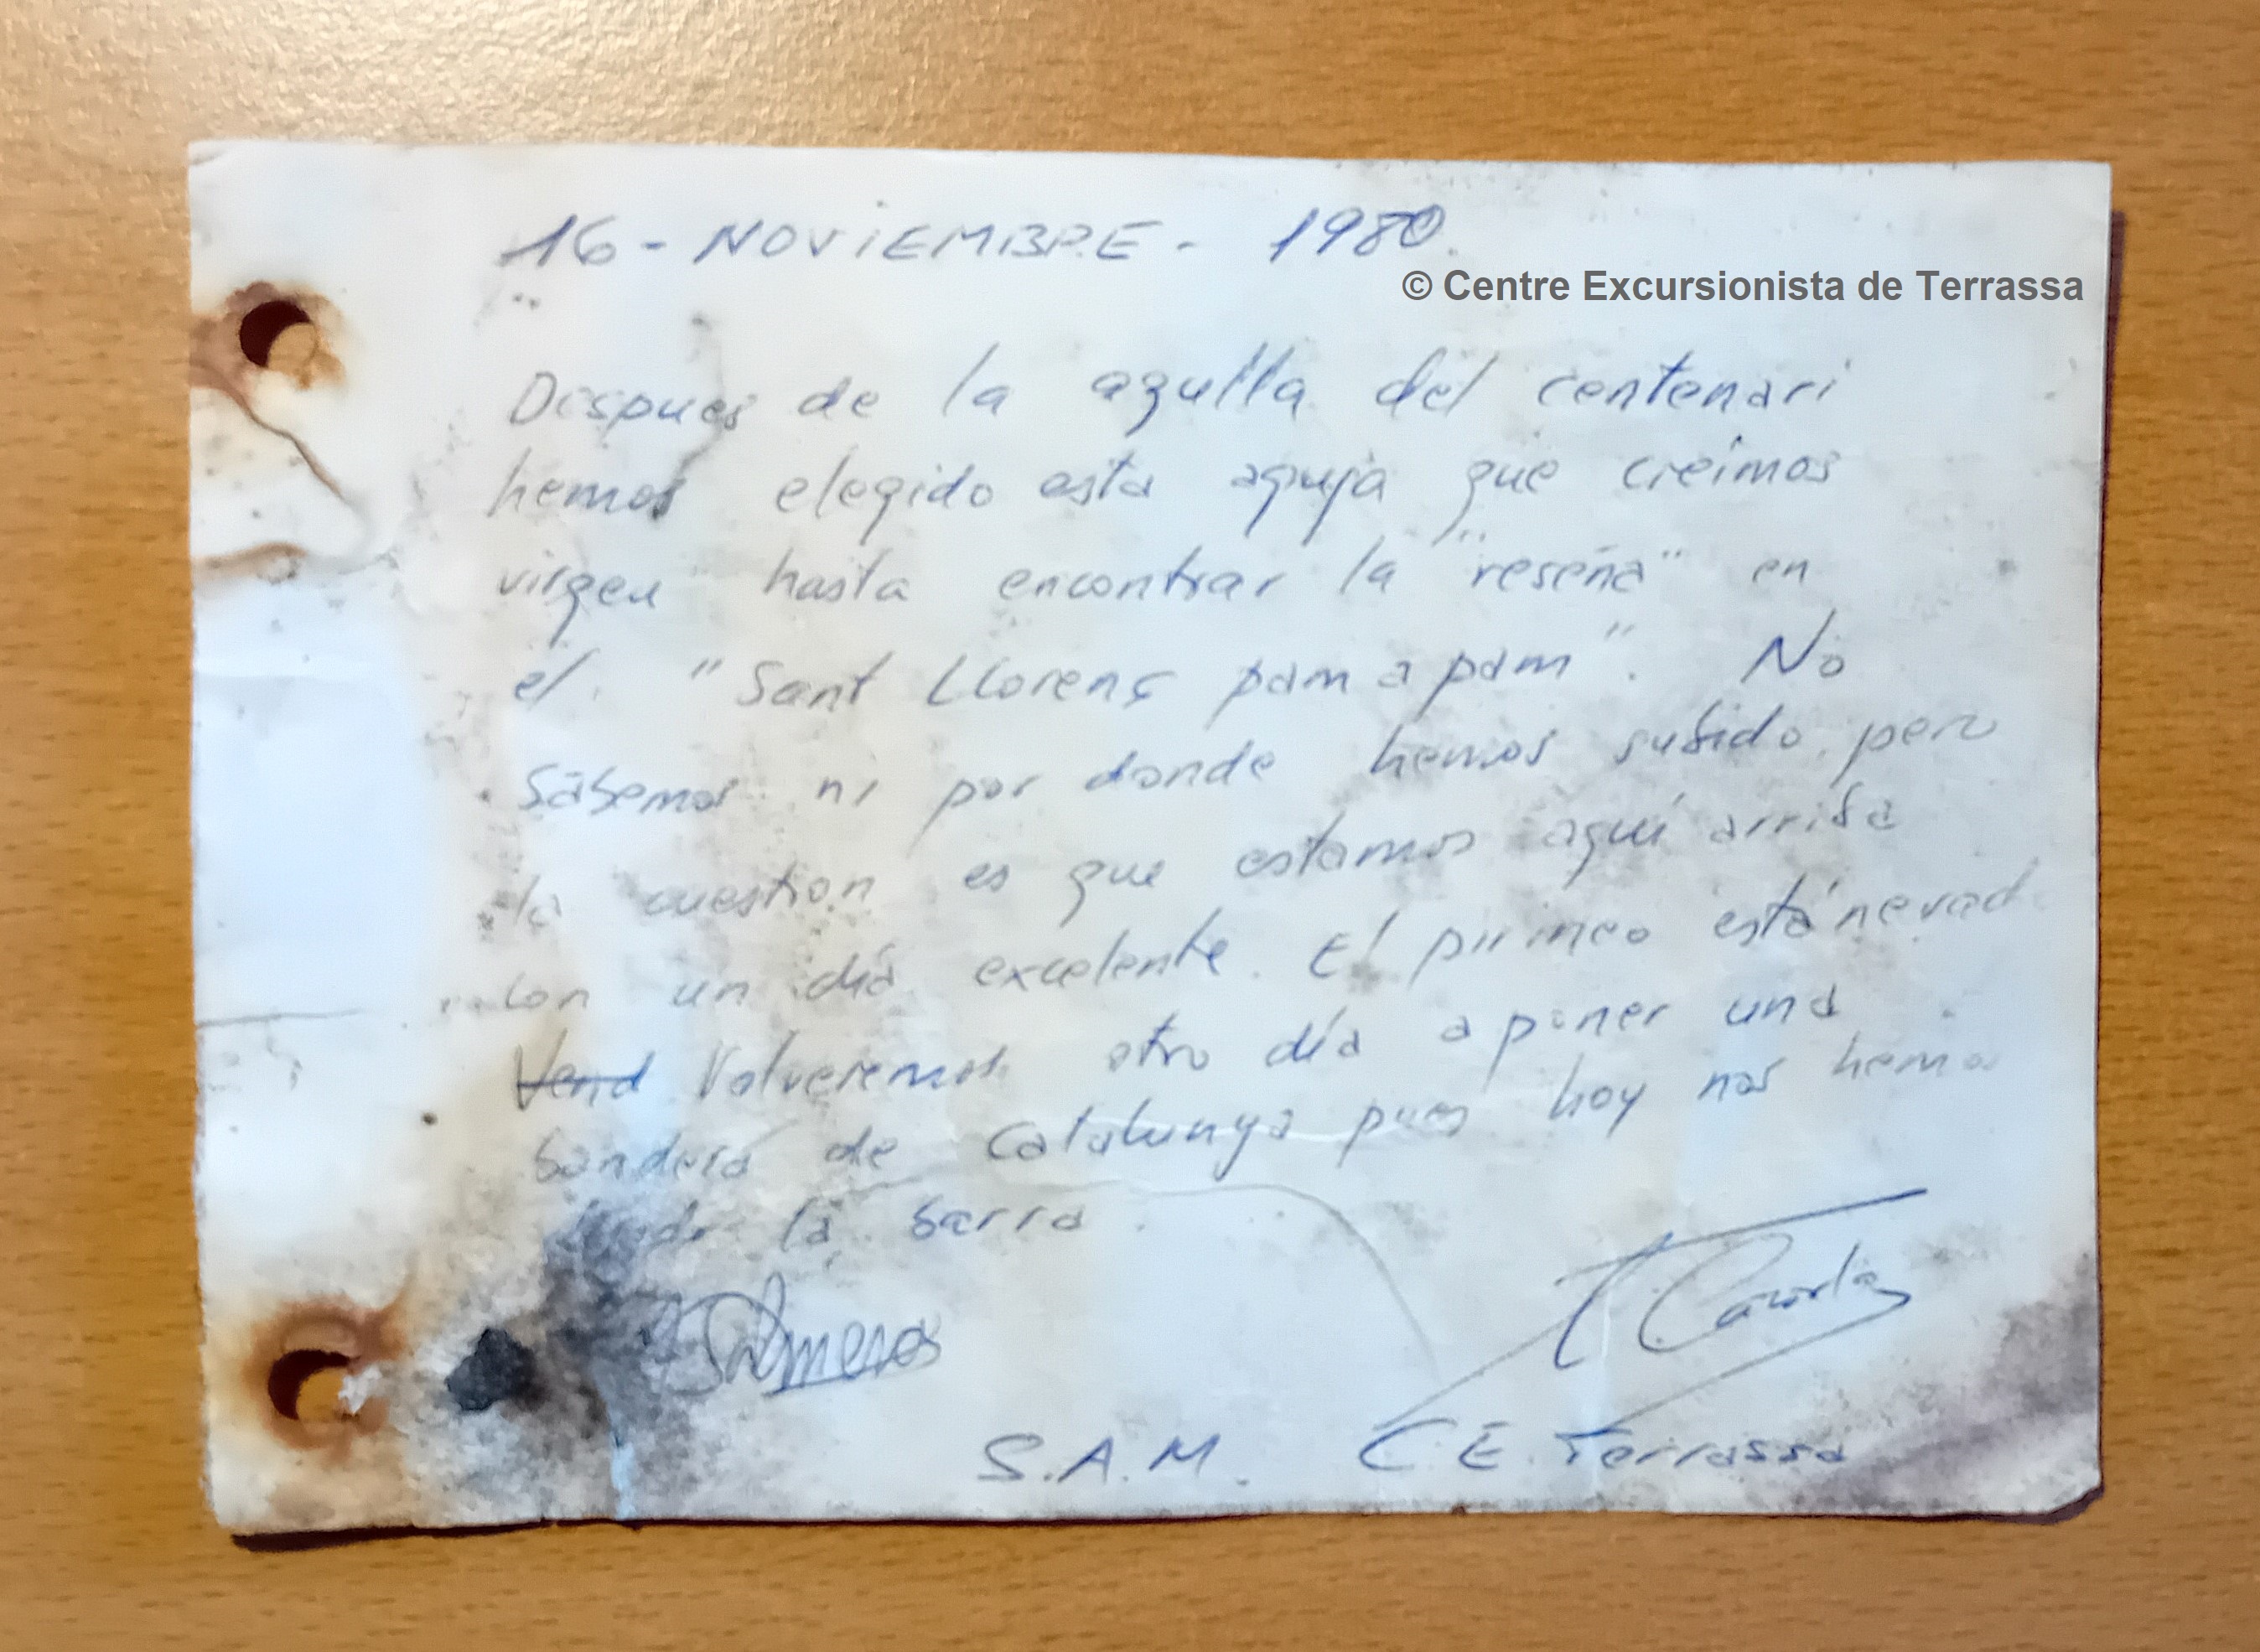 16 - NOVIEMBRE - 1980.
© Centre Excursionista de Terrassa
Despues de la agulla del centenari
hemos elegido esta aguja que creímos
virgen hasta encontrar la "reseña" en
el "Sant Llorenç pam a pam". No
sabemos ni por donde hemos subido pero
la cuestion es que estamos aquí arriba
con un día excelente. El pirineo está nevad
Vend Volveremos otro día a poner una
bandera de Catalunya pues hoy nos hemos
la barra.
S.A.M. C.E. Terrassa